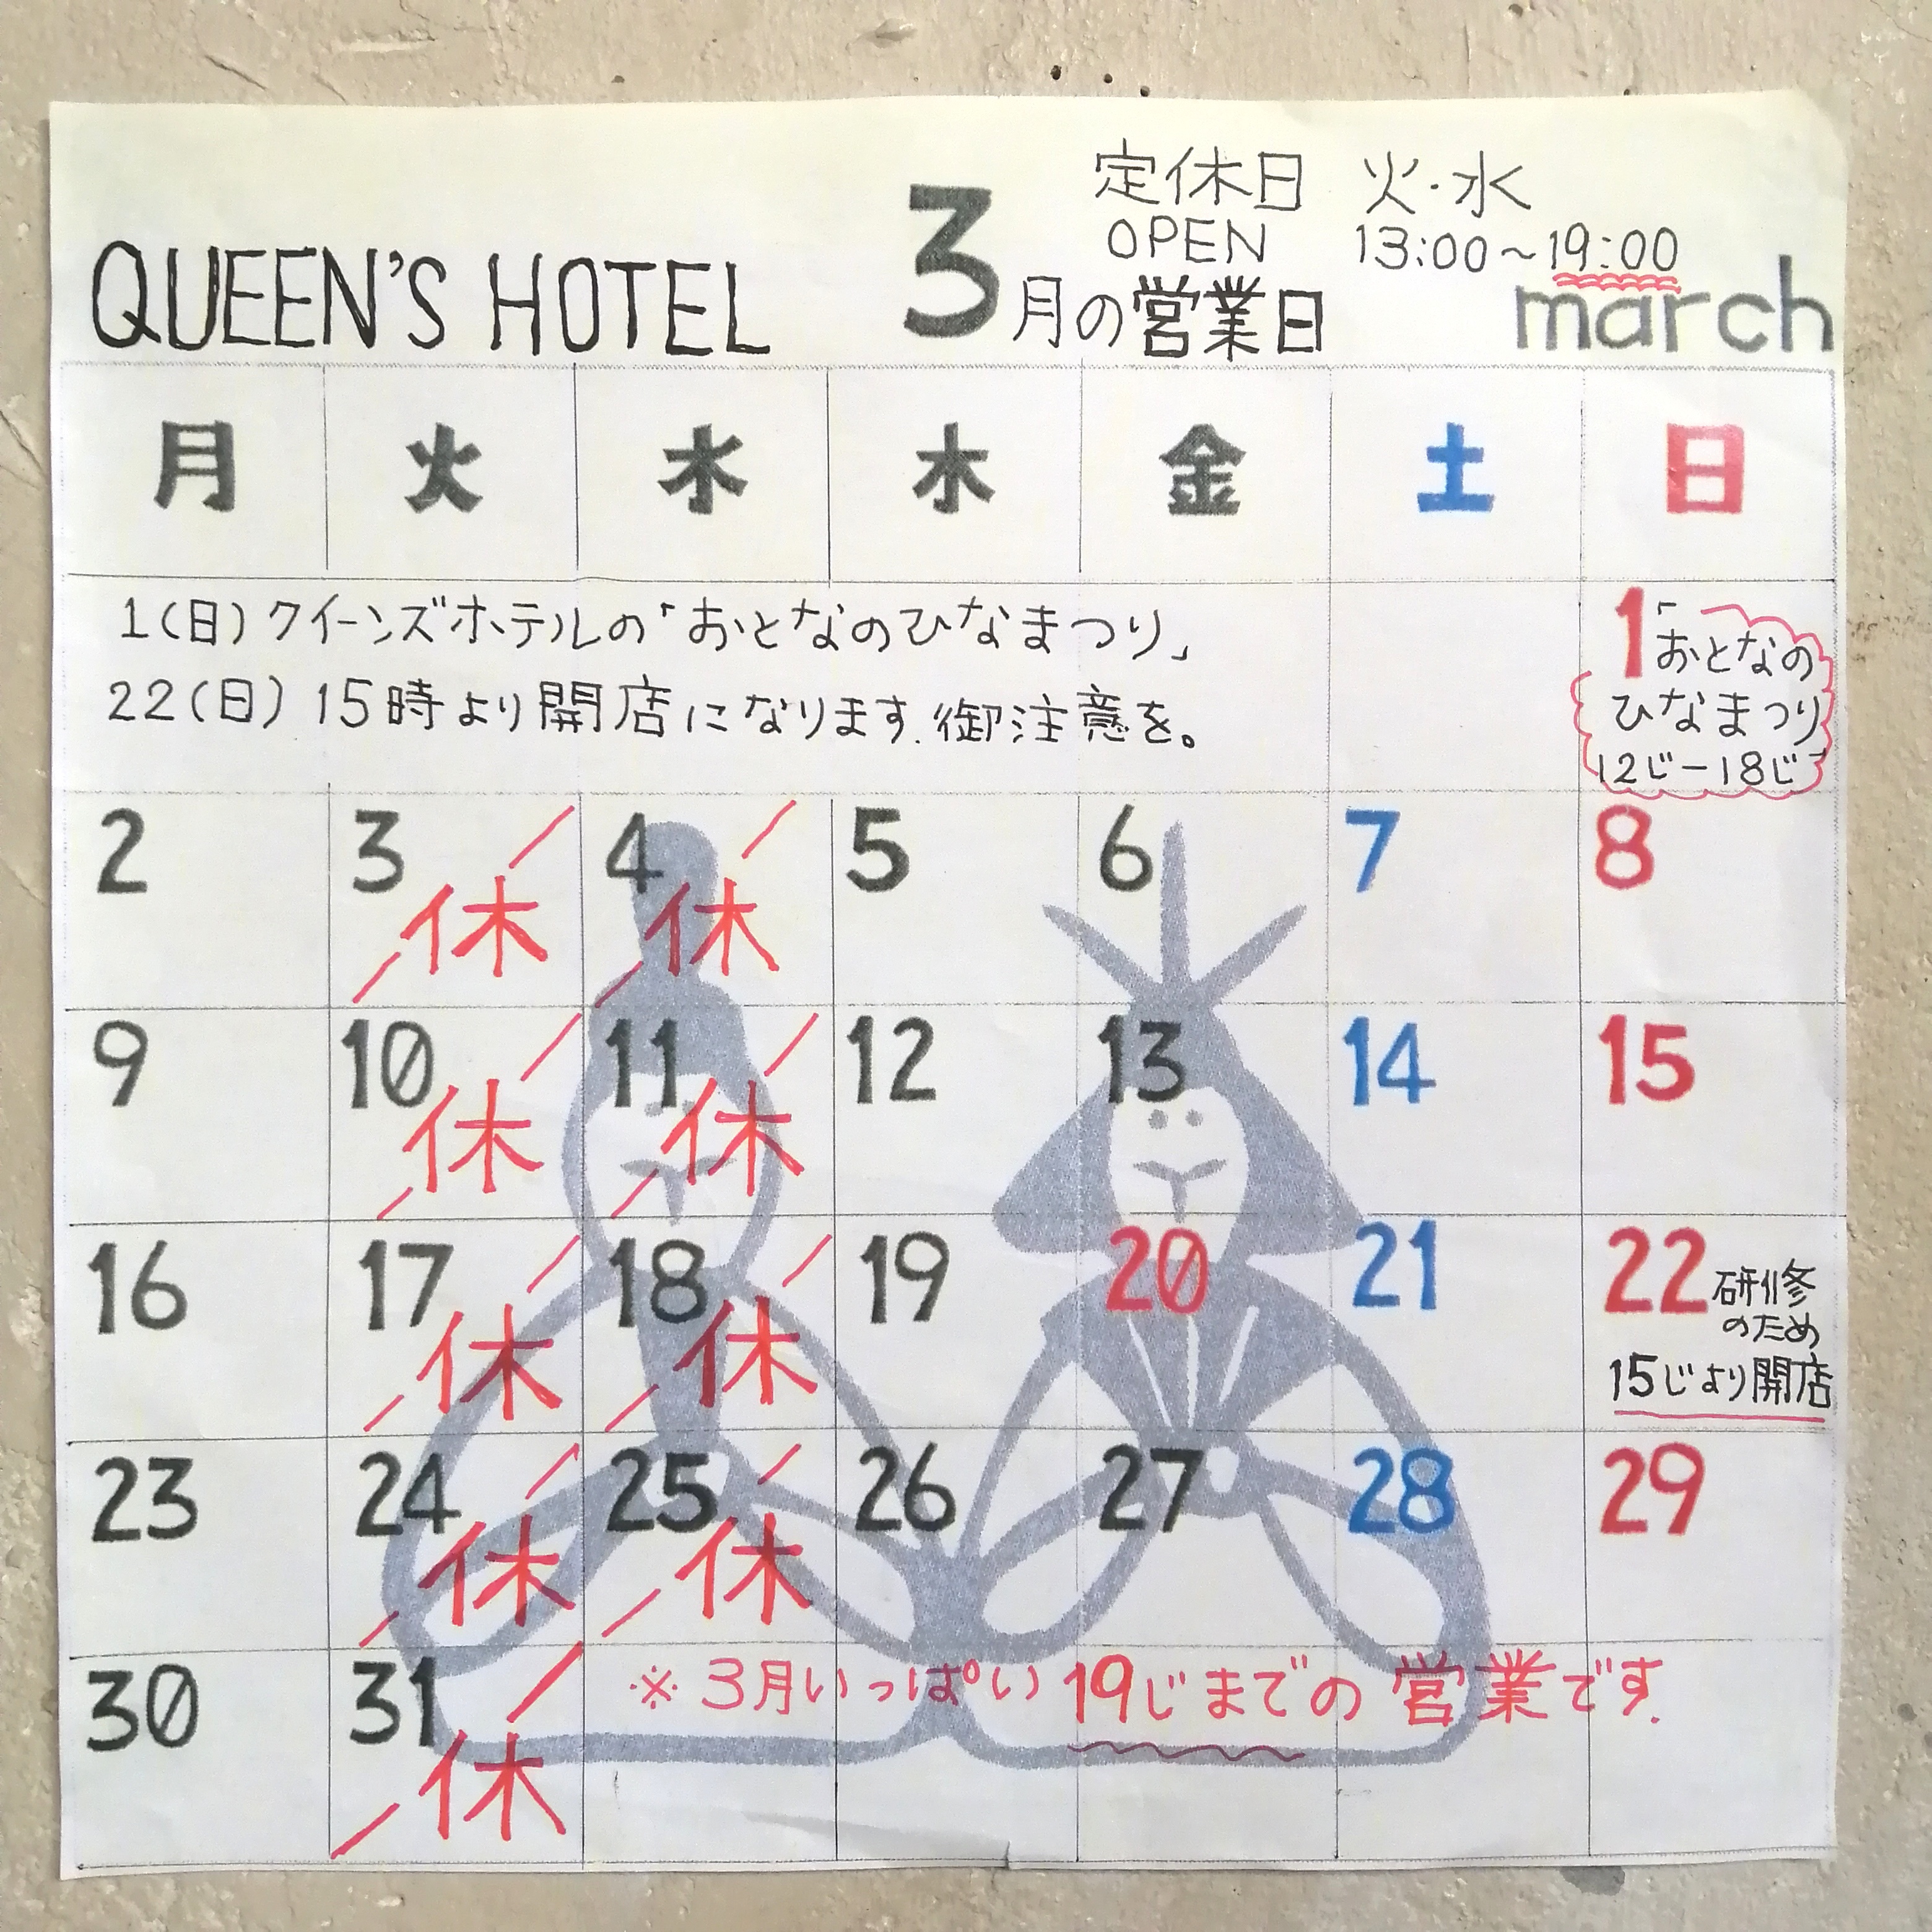 定休日 火・水
OPEN 13:00～19:00
QUEEN'S HOTEL 3月の営業日 march
月 火 水 木 金 土 日
1(日)クイーンズホテルの「おとなのひなまつり」
22(日) 15時より開店になります.御注意を。
1「おとなの
ひなまつり」
12じー18じ
2 3 4 5 6 7 8
休 休
9 10 11 12 13 14 15
休 休
16 17 18 19 20 21 22 研修
のため
休 休
15じより開店
23 24 25 26 27 28 29
休 休
30 31 ※3月いっぱい19じまでの営業です.
休